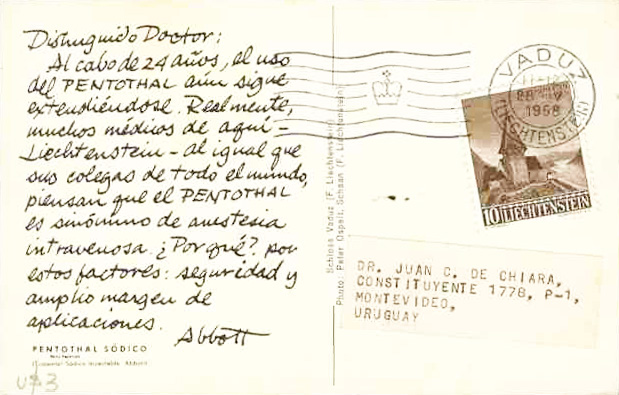 Distinguido Doctor:
Al cabo de 24 años, el uso
del PENTOTHAL aún sigue
extendiéndose. Realmente,
muchos médicos de aquí -
Liechtenstein - al igual que
sus colegas de todo el mundo,
piensan que el PENTOTHAL
es sinónimo de anestesia
intravenosa. ¿Por qué? por
estos factores: seguridad y
amplio margen de
aplicaciones.
Abbott
PENTOTHAL SÓDICO
(Tiopental Sódico Inyectable, Abbott)
Schloss Vaduz (F. Liechtenstein)
Photo: Peter Ospelt, Schaan (F. Liechtenstein)
VADUZ
1958
(LIECHTENSTEIN)
10 LIECHTENSTEIN
DR. JUAN C. DE CHIARA,
CONSTITUYENTE 1778, P-1,
MONTEVIDEO,
URUGUAY